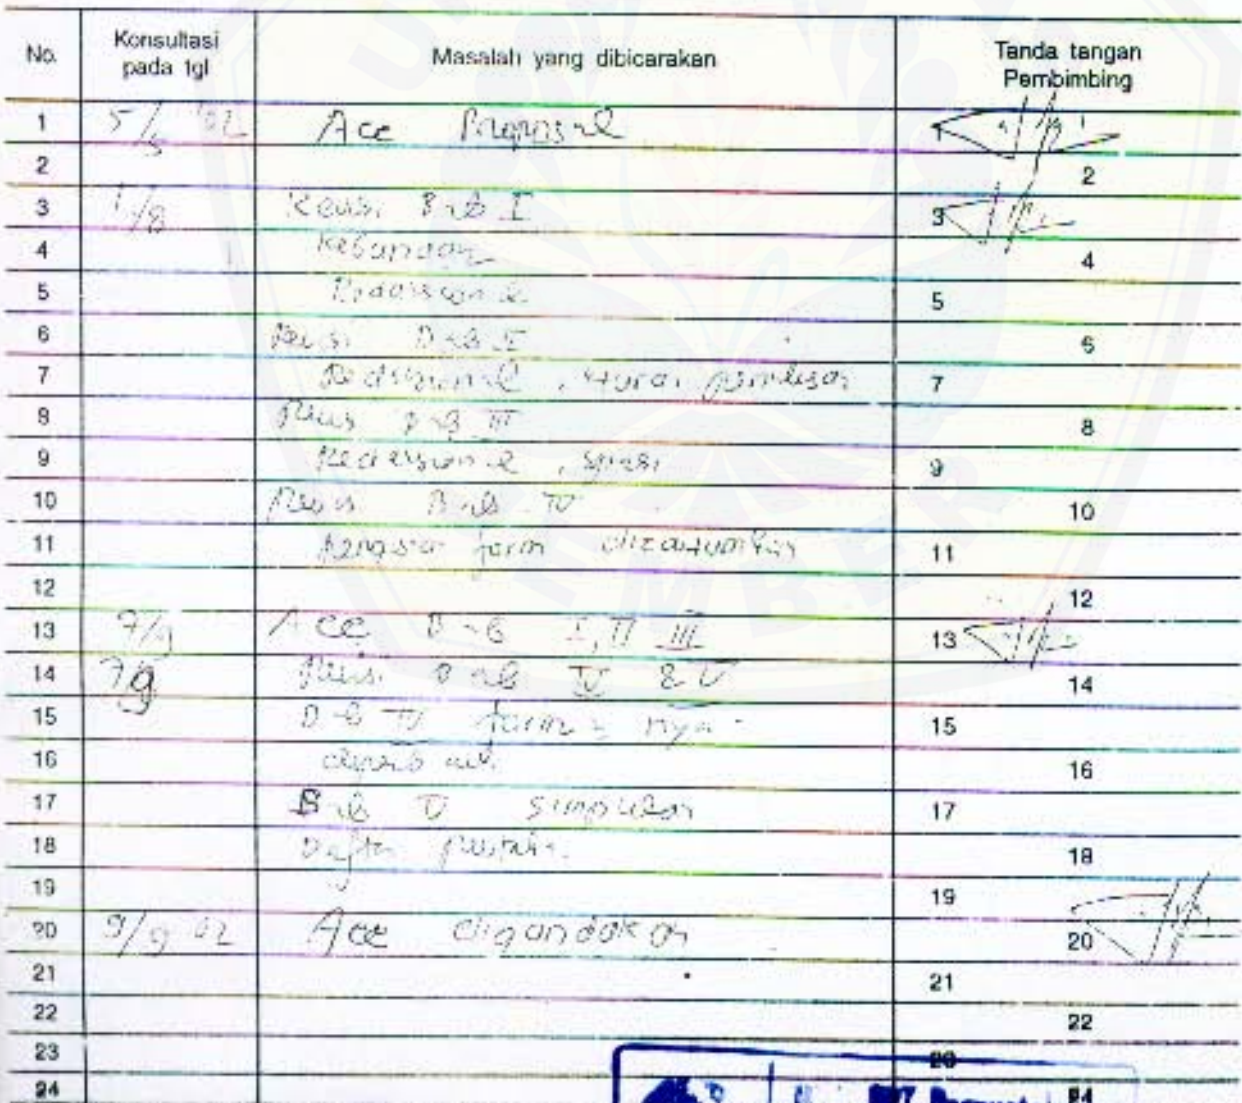 No. Konsultasi pada tgl Masalah yang dibicarakan Tanda tangan Pembimbing
1 5/5 '02 Acc Proposal 1
2 2
3 1/8 Revisi Bab I 3
4 4
5 Redaksional 5
6 Revisi Bab II 6
7 Redaksional, penulisan 7
8 Revisi Bab III 8
9 Redaksional, spasi 9
10 Revisi Bab IV 10
11 form dicantumkan 11
12 12
13 7/9 Acc Bab I, II III 13
14 7/9 Revisi Bab IV & V 14
15 Bab IV form2 nya 15
16 16
17 Bab V simpulan 17
18 Daftar pustaka 18
19 19
20 9/9 02 Acc digandakan 20
21 21
22 22
23 23
24 24